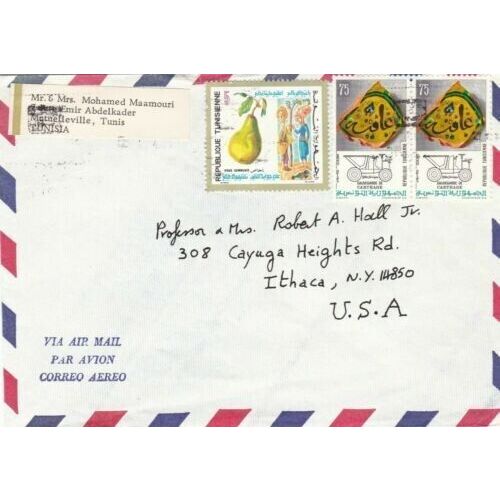 Mr. & Mrs. Mohamed Maamouri
Emir Abdelkader
Mutuelleville, Tunis
TUNISIA
REPUBLIQUE TUNISIENNE
75
75
عافية
عافية
CARTHAGE
CARTHAGE
Professor & Mrs. Robert A. Hall Jr.
308 Cayuga Heights Rd.
Ithaca, N.Y. 14850
U.S.A
VIA AIR MAIL
PAR AVION
CORREO AEREO